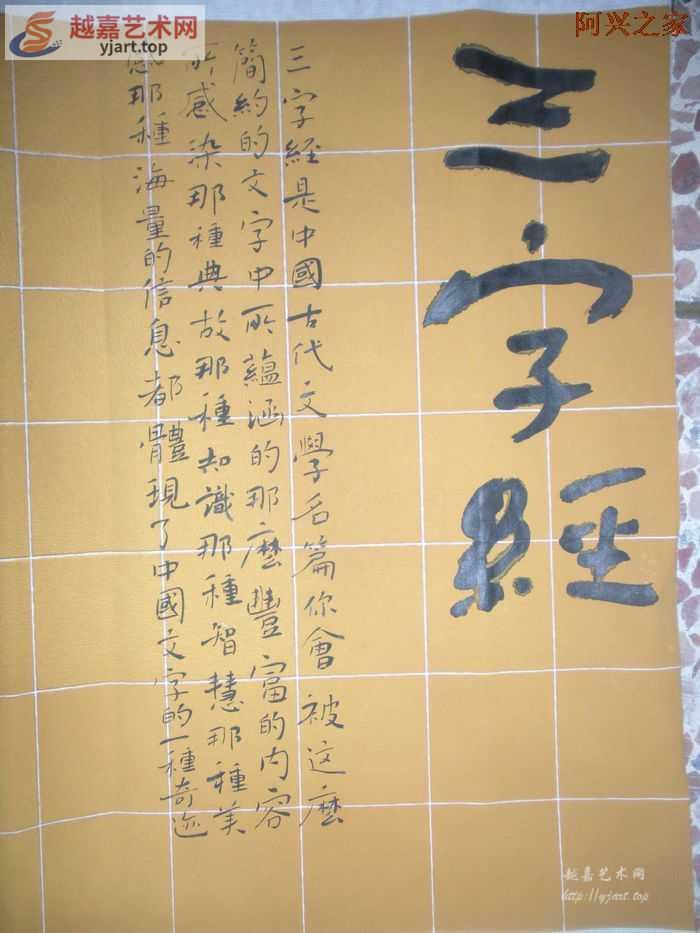 越嘉艺术网
yjart.top
阿兴之家
三字經
三字經是中國古代文學名篇你會被这麼
簡約的文字中所蘊涵的那麽豐富的内容
所感染那種典故那種知識那種智慧那種美
感那種海量的信息都體現了中國文字的一種奇迹
越嘉艺术网
http://yjart.top